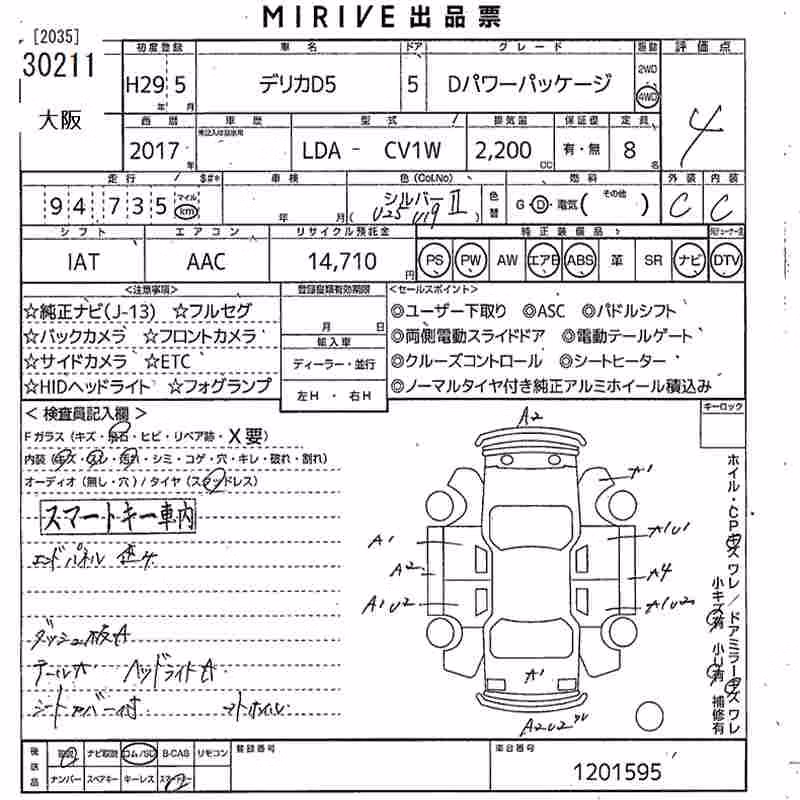 MIRIVE 出品票
[2035]
30211
大阪
初度登録 車名 ドア グレード 駆動 評価点
H29 年 5 月 デリカD5 5 Dパワーパッケージ 2WD 4WD 4
西暦 車歴 型式 排気量 保証書 定員
2017 年 LDA - CV1W 2,200 CC 有・無 8 名
走行 $#* 車検 色(Col.No) 燃料 外装 内装
94,735 マイル km 年 月 シルバーII 色替 G・D・電気( その他 ) C C
U25 U19
シフト エアコン リサイクル預託金 純正装備品
IAT AAC 14,710 円 PS PW AW エアB ABS 革 SR ナビ DTV
<注意事項> 登録書類有効期限 <セールスポイント>
☆純正ナビ(J-13) ☆フルセグ ◎ユーザー下取り ◎ASC ◎パドルシフト
☆バックカメラ ☆フロントカメラ 月 日 ◎両側電動スライドドア ◎電動テールゲート
☆サイドカメラ ☆ETC 輸入車 ◎クルーズコントロール ◎シートヒーター
☆HIDヘッドライト ☆フォグランプ ディーラー・並行 ◎ノーマルタイヤ付き純正アルミホイール積込み
左H ・ 右H
<検査員記入欄> キーロック
Fガラス(キズ・飛石・ヒビ・リペア跡・X要)
内装(キズ・ヨレ・汚れ・シミ・コゲ・穴・キレ・破れ・割れ)
オーディオ(無し・穴)/タイヤ(スタッドレス)
スマートキー車内
エンドパネル
ダッシュ板A
テールA ヘッドライトA
A2
A1
A1 A1U1
A2 A4
A1U2 A1U2
A1
A2U2
ホイル・CPキズ ワレ/ドアミラーキズ ワレ
小キズ有 小U有 補修有
後送品 取説 ナビ取説 ロム/SD B-CAS リモコン 登録番号 車台番号
ナンバー スペアキー キーレス スマートキー 1201595